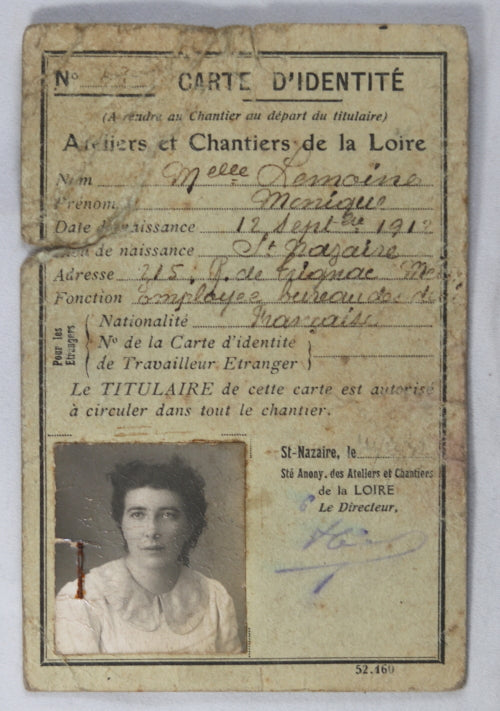 N° CARTE D'IDENTITÉ
(A rendre au Chantier au départ du titulaire)
Ateliers et Chantiers de la Loire
Nom Melle Lemoine
Prénom Monique
Date de naissance 12 Septbre 191
Lieu de naissance St Nazaire
Adresse 215, R. de Trignac
Fonction Employée bureau des
Pour les Etrangers
Nationalité Française
N° de la Carte d'identité
de Travailleur Etranger
Le TITULAIRE de cette carte est autorisé
à circuler dans tout le chantier.
St-Nazaire, le
Sté Anony. des Ateliers et Chantiers
de la LOIRE
Le Directeur,
52.160